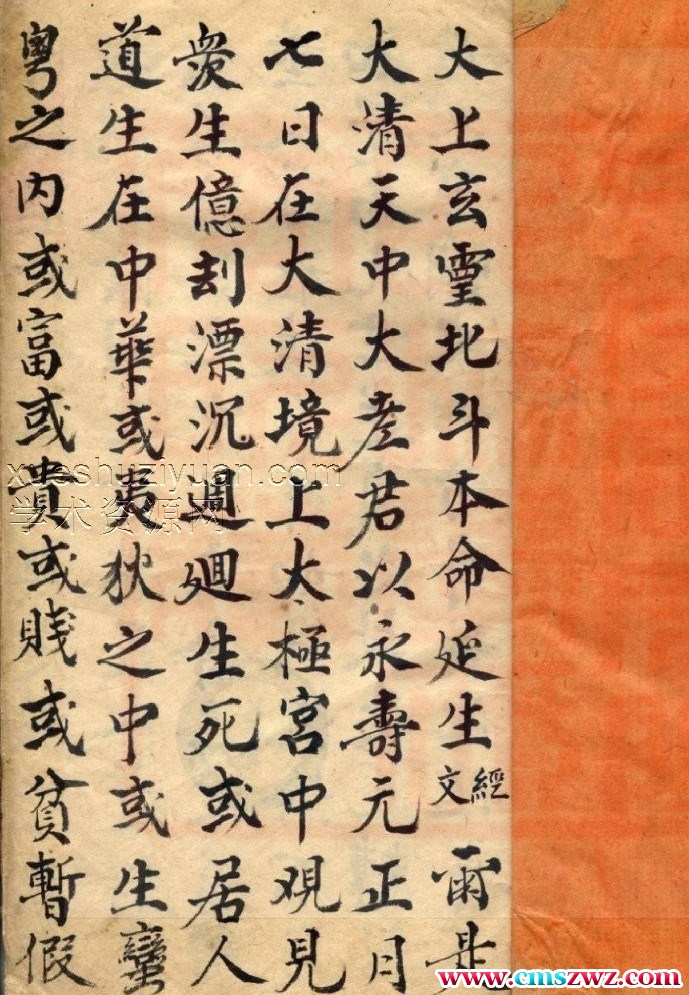 大上玄霊北斗本命延生經文爾是
大清天中大老君以永壽元正月
七日在大清境上太極宮中观見
衆生億刦漂沉週廻生死或居人
道生在中華或夷狄之中或生蠻
粵之内或富或貴或賤或貧暫假
xueshuziyuan.com
学术资源网
www.cmszwz.com